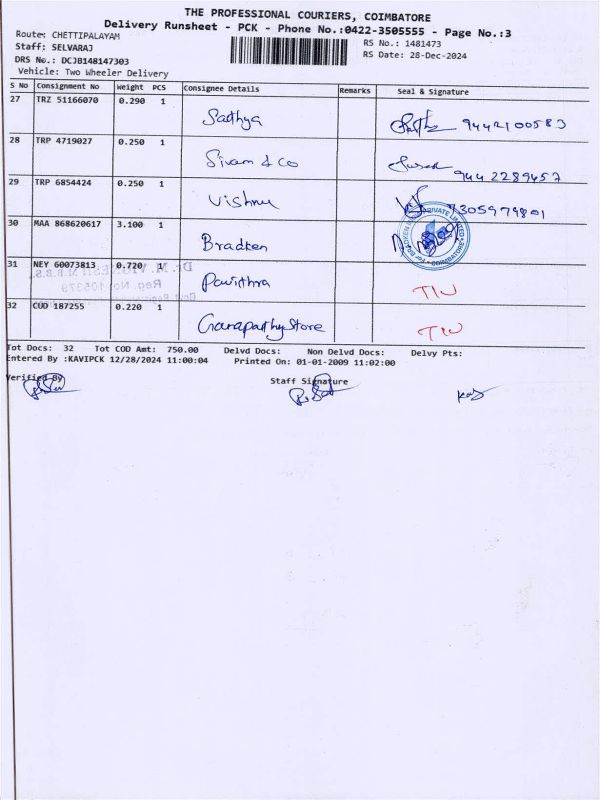 THE PROFESSIONAL COURIERS, COIMBATORE
Delivery Runsheet - PCK - Phone No.:0422-3505555 - Page No.:3
Route: CHETTIPALAYAM RS No.: 1481473
Staff: SELVARAJ RS Date: 28-Dec-2024
DRS No.: DCJB148147303
Vehicle: Two Wheeler Delivery
S No Consignment No Weight PCS Consignee Details Remarks Seal & Signature
27 TRZ 51166070 0.290 1 Sathya 9442100583
28 TRP 4719027 0.250 1 Sivam & Co 9442289457
29 TRP 6854424 0.250 1 Vishnu 7305979801
30 MAA 868620617 3.100 1 Bradken
31 NEY 60073813 0.720 1 Pavithra
32 CUD 187255 0.220 1 Ganapathy Store
Tot Docs: 32 Tot COD Amt: 750.00 Delvd Docs: Non Delvd Docs: Delvy Pts:
Entered By :KAVIPCK 12/28/2024 11:00:04 Printed On: 01-01-2009 11:02:00
Verified By Staff Signature